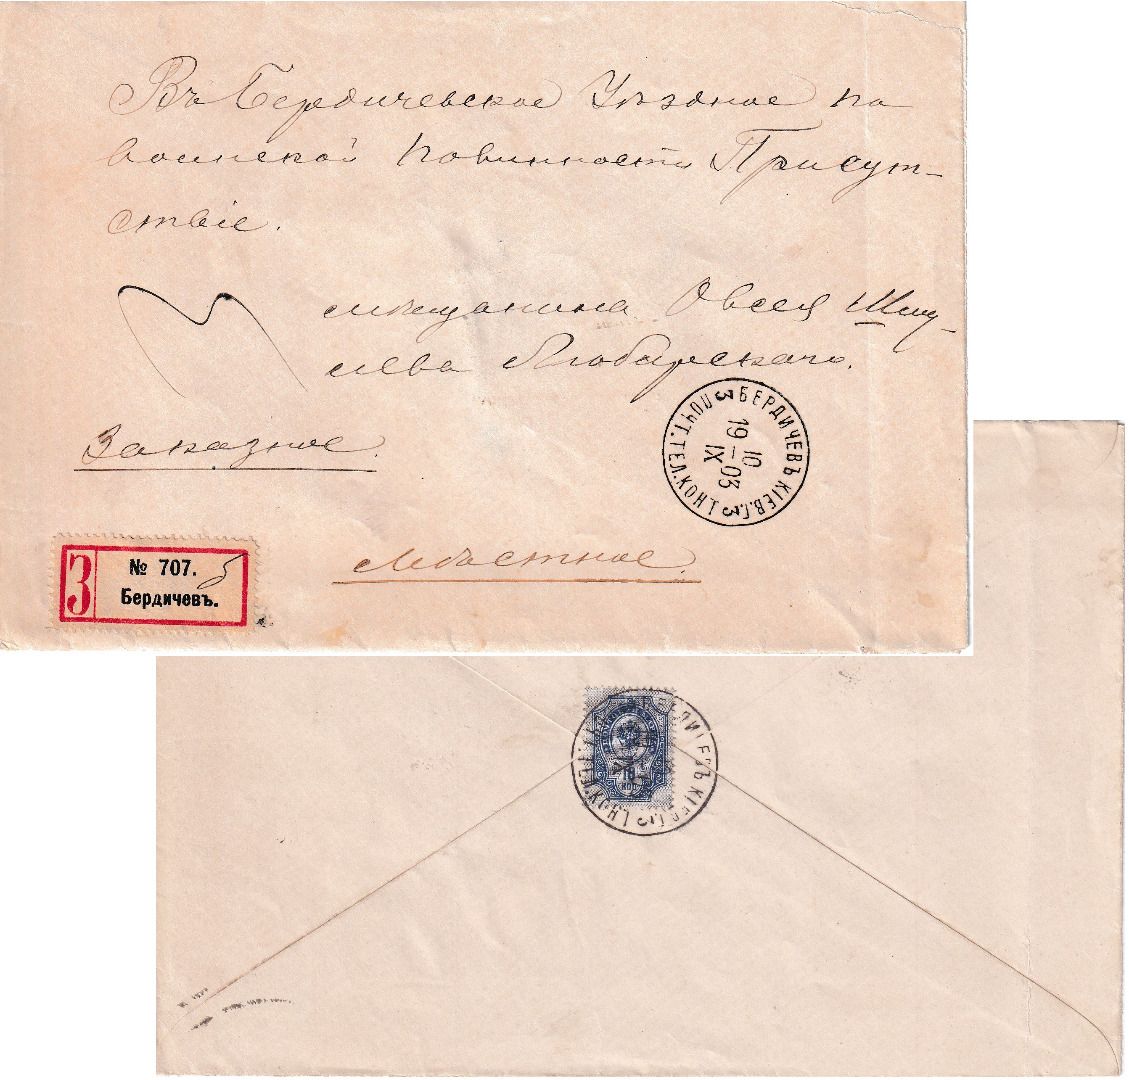 Въ Бердичевское Уѣздное по
воинской повинности Присут-
ствіе.
мѣщанина Овсея Шму-
лева Любарскаго.
Заказное.
Мѣстное.
З № 707.
Бердичевъ.
БЕРДИЧЕВЪ КІЕВ.Г.
ПОЧТ.ТЕЛ.КОНТ.
3 3
10
19 – 03
IX
10
КОП